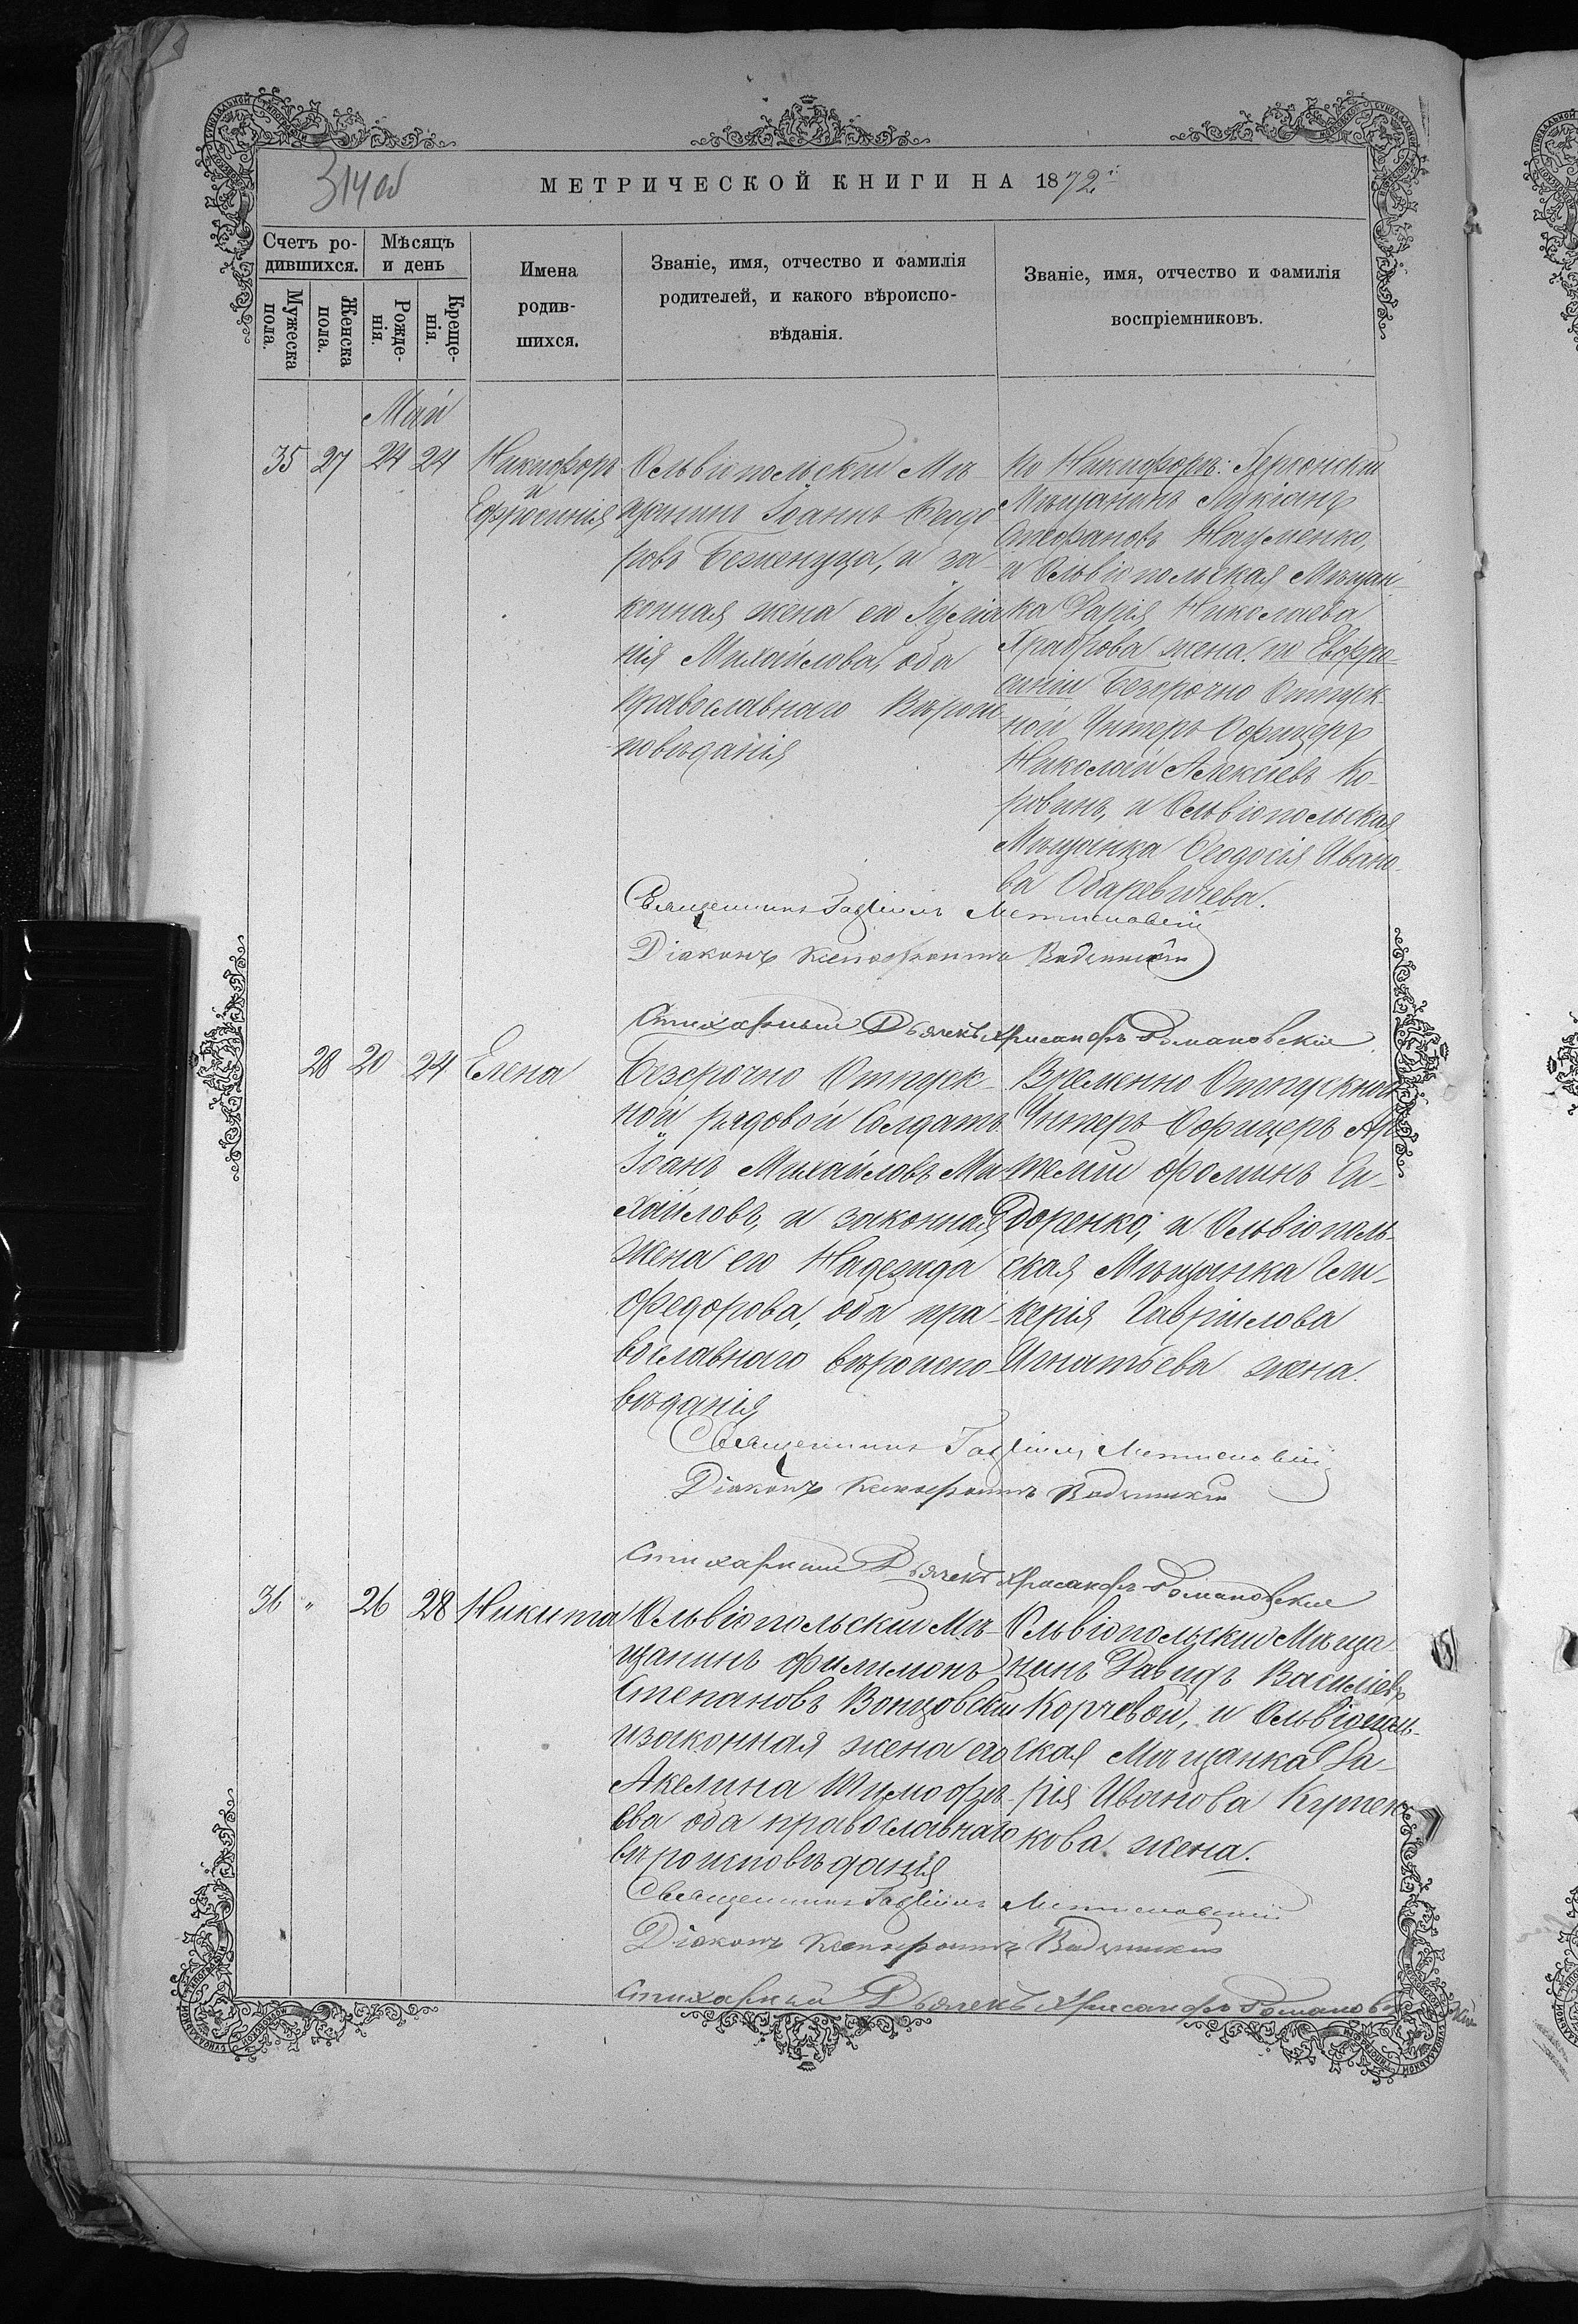 314 об
МЕТРИЧЕСКОЙ КНИГИ НА 1872й
Счетъ ро-
дившихся.
Мѣсяцъ
и день
Мужеска
пола.
Женска
пола.
Рожде-
нія.
Креще-
нія.
Имена
родив-
шихся.
Званіе, имя, отчество и фамилія
родителей, и какого вѣроиспо-
вѣданія.
Званіе, имя, отчество и фамилія
воспріемниковъ.
Май
35 27 24 24
Никифоръ
и
Ефросинія
Ольвіопольскій Мѣ-
щанинъ Іоаннъ Ѳеодо
ровъ Беженуца, и за-
конная жена его Іуліа
нія Михайлова, оба
православнаго Вѣроис-
повѣданія
По Никифорѣ: Херсонскій
Мѣщанинъ Лукіанъ
Стефановъ Науменко,
и Ольвіопольская Мѣщан-
ка Дарія Николаева
Храброва жена. по Евфро-
синіи Безсрочно Отпуск-
ной Унтеръ Офицеръ
Николай Алексіевъ Ко-
ровинъ, и Ольвіопольская
Мѣщанка Ѳеодосія Ивано-
ва Обаревичева.
Священникъ Гавріилъ
Діаконъ Ксенофонтъ
Стихарный Дьячекъ Хрисанфъ Романовскій
28 20 24 Елена
Безсрочно Отпуск-
ной рядовой Солдатъ
Іоанъ Михайловъ Ми-
хайловъ, и законная
жена его Надежда
Федорова, оба пра-
вославнаго вѣроиспо-
вѣданія
Временно Отпускной
Унтеръ Офицеръ Ар-
темій Фоминъ Си-
доренко, и Ольвіополь-
ская Мѣщанка Гли-
керія Гавріилова
Игнатьева жена.
Священникъ Гавріилъ
Діаконъ Ксенофонтъ
Стихарный Дьячекъ Хрисанфъ Романовскій
36 " 26 28 Никита
Ольвіопольскій Мѣ-
щанинъ Филимонъ
Степановъ Вонцовскій
и законная жена его
Акелина Тимофѣ-
ева оба православнаго
вѣроисповѣданія
Ольвіопольскій Мѣща
нинъ Давидъ Василіевъ
Корчевой, и Ольвіополь-
ская Мѣщанка Да-
рія Иванова Купен-
кова жена.
Священникъ Гавріилъ
Діаконъ Ксенофонтъ
Стихарный Дьячекъ Хрисанфъ Романовскій